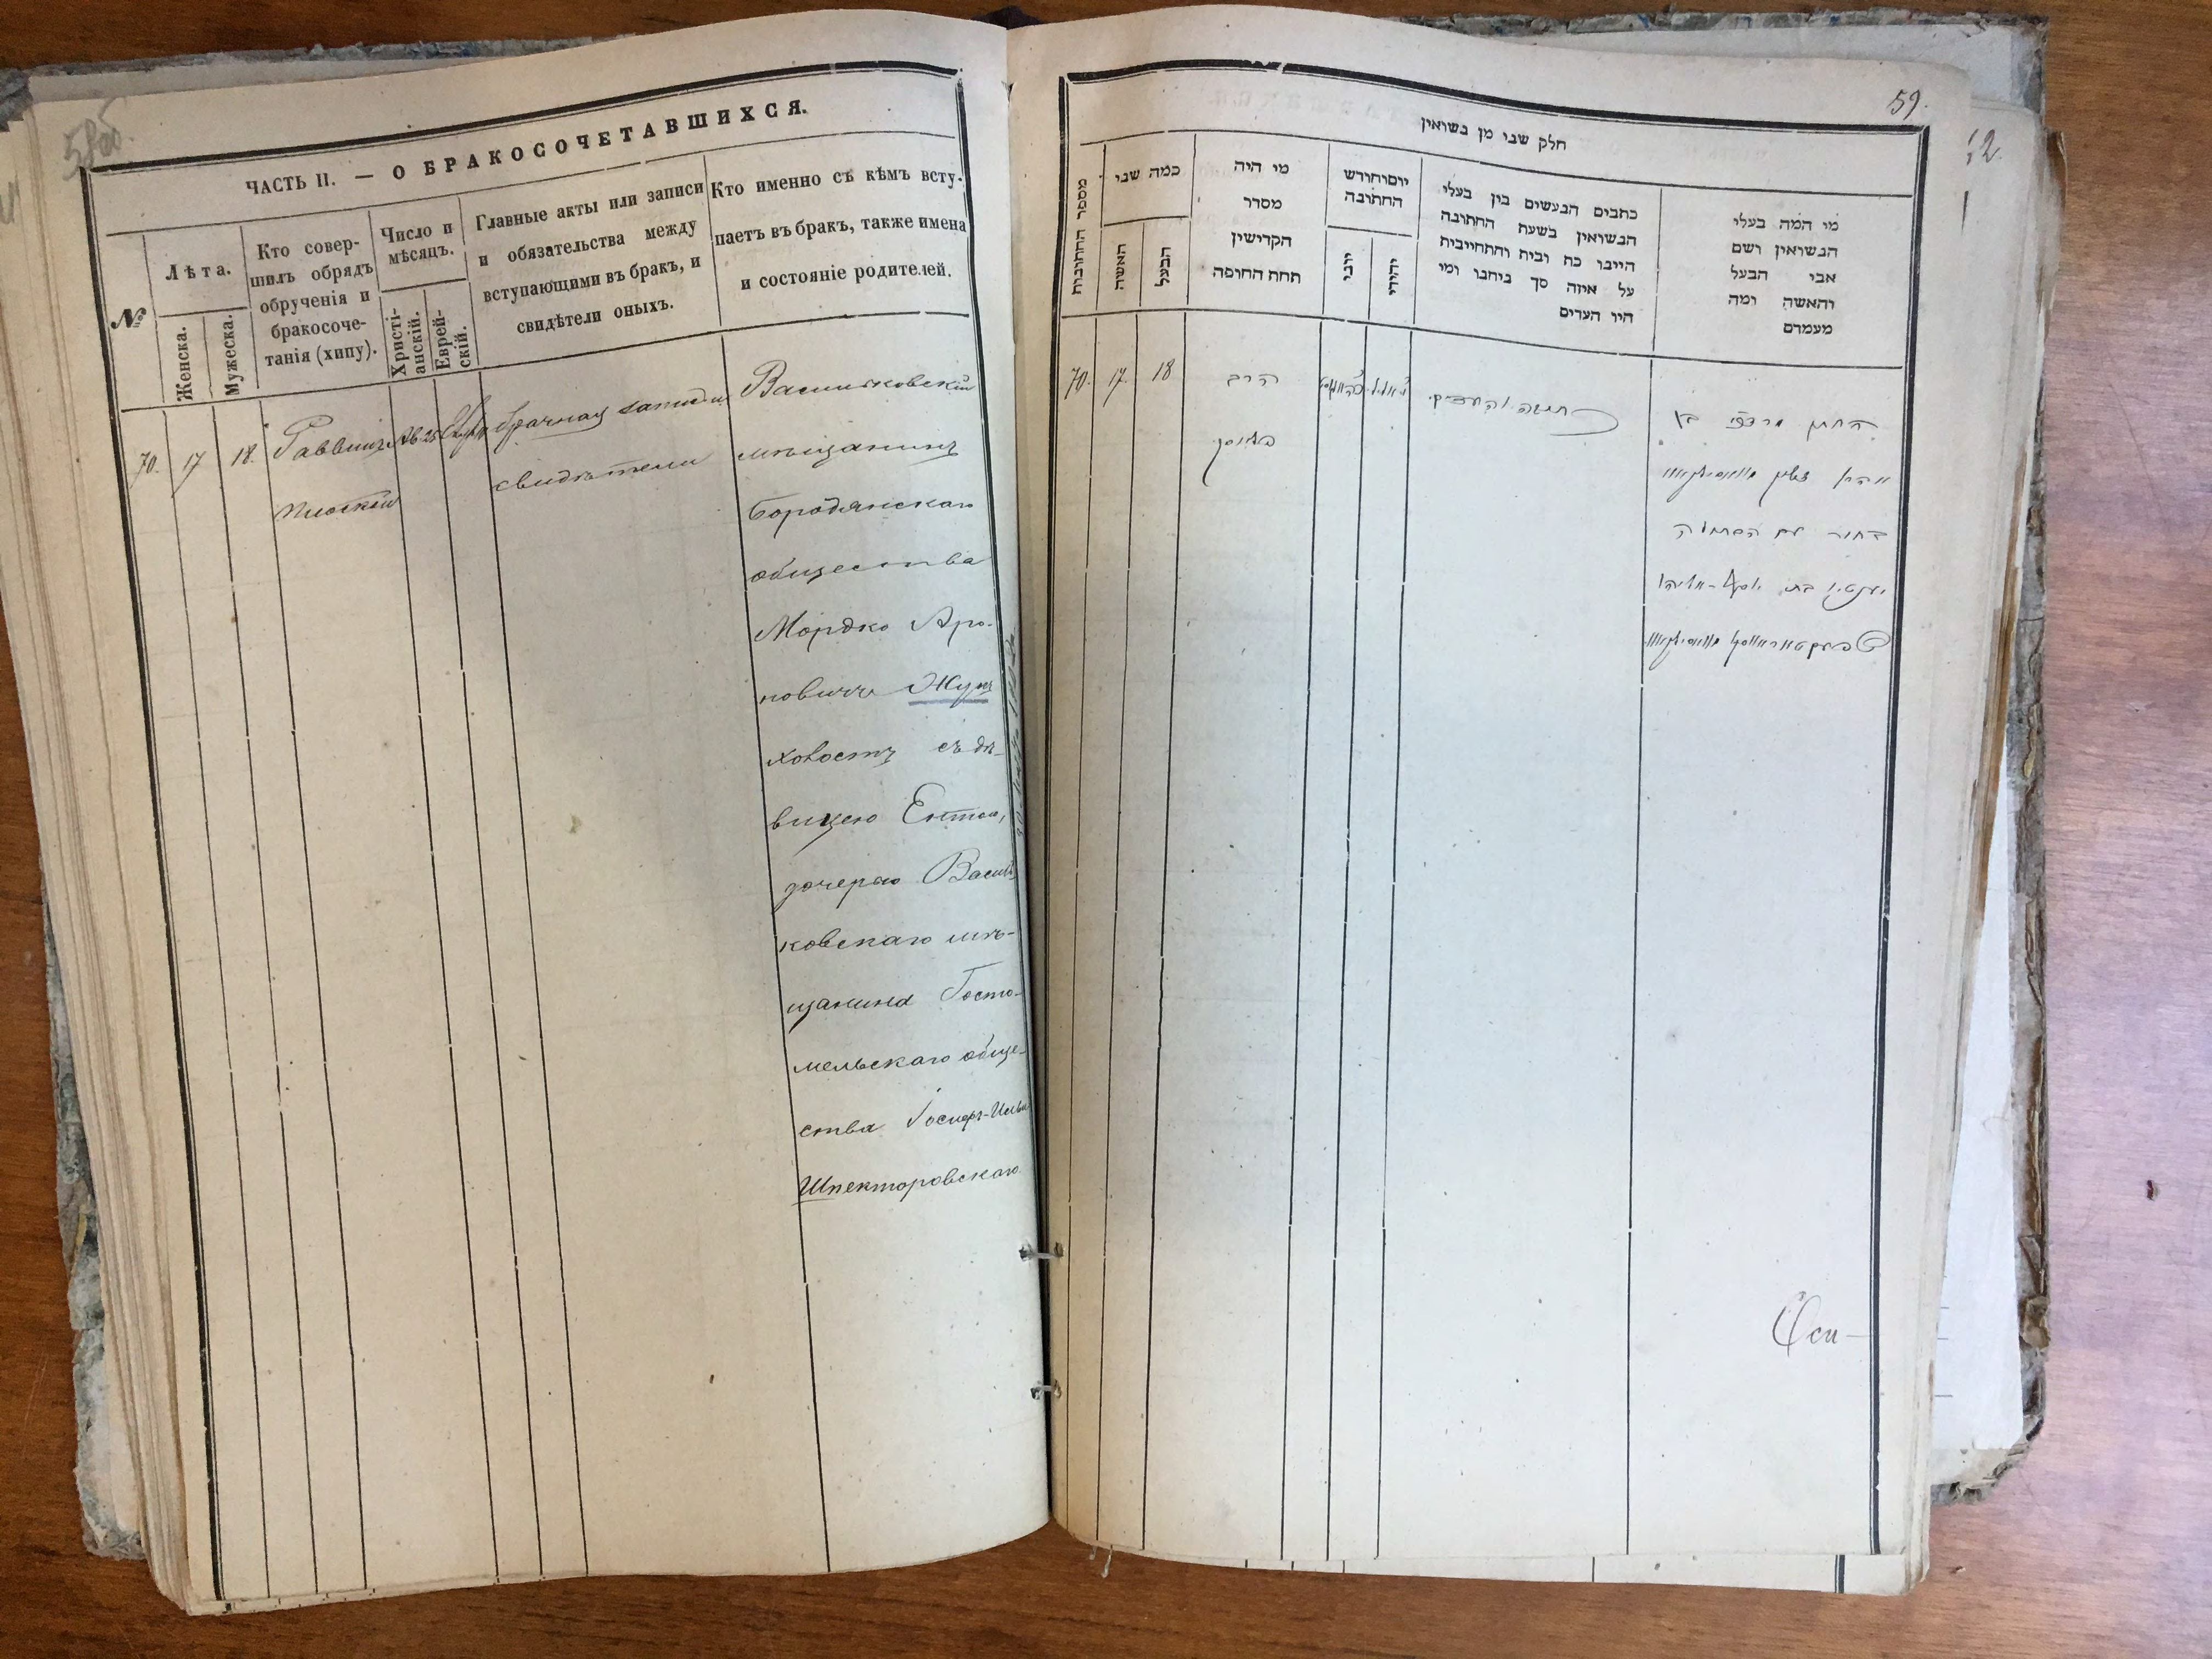 58об.
ЧАСТЬ II. — О БРАКОСОЧЕТАВШИХСЯ.
№
Лѣта.
Женска.
Мужеска.
Кто совер-
шилъ обрядъ
обрученія и
бракосоче-
танія (хипу).
Число и
мѣсяцъ.
Христі-
анскій.
Еврей-
скій.
Главные акты или записи
и обязательства между
вступающими въ бракъ, и
свидѣтели оныхъ.
Кто именно съ кѣмъ всту-
паетъ въ бракъ, также имена
и состояніе родителей.
70.
17
18.
Раввинъ
Плоскій
брачная запись и
свидѣтели
Васильковскій
мѣщанинъ
Бородянскаго
общества
Мордко Аро-
новичъ Жук
ховостъ съ дѣ-
вицею Ентею,
дочерью Василь
ковскаго мѣ-
щанина Госто-
мельскаго обще-
ства Іосифъ-
Шпекторовскаго
59.
חלק שני מן נשואין
מספר החתונות
כמה שני
האשה
הבעל
מי היה
מסדר
הקדישין
תחת החופה
יום וחודש
החתונה
יוני
יהודי
כתבים הנעשים בין בעלי
הנשואין בשעת החתונה
הייבו כח ובית והתחייבית
על איזה סך ניתנו ומי
היו העדים
מי המה בעלי
הנשואין ושם
אבי הבעל
והאשה ומה
מעמדם
70.
17.
18
הרב
החתן מרדכי בן
בחור עם הבתולה
יענטע בת יוסף-אליהו
Оси-